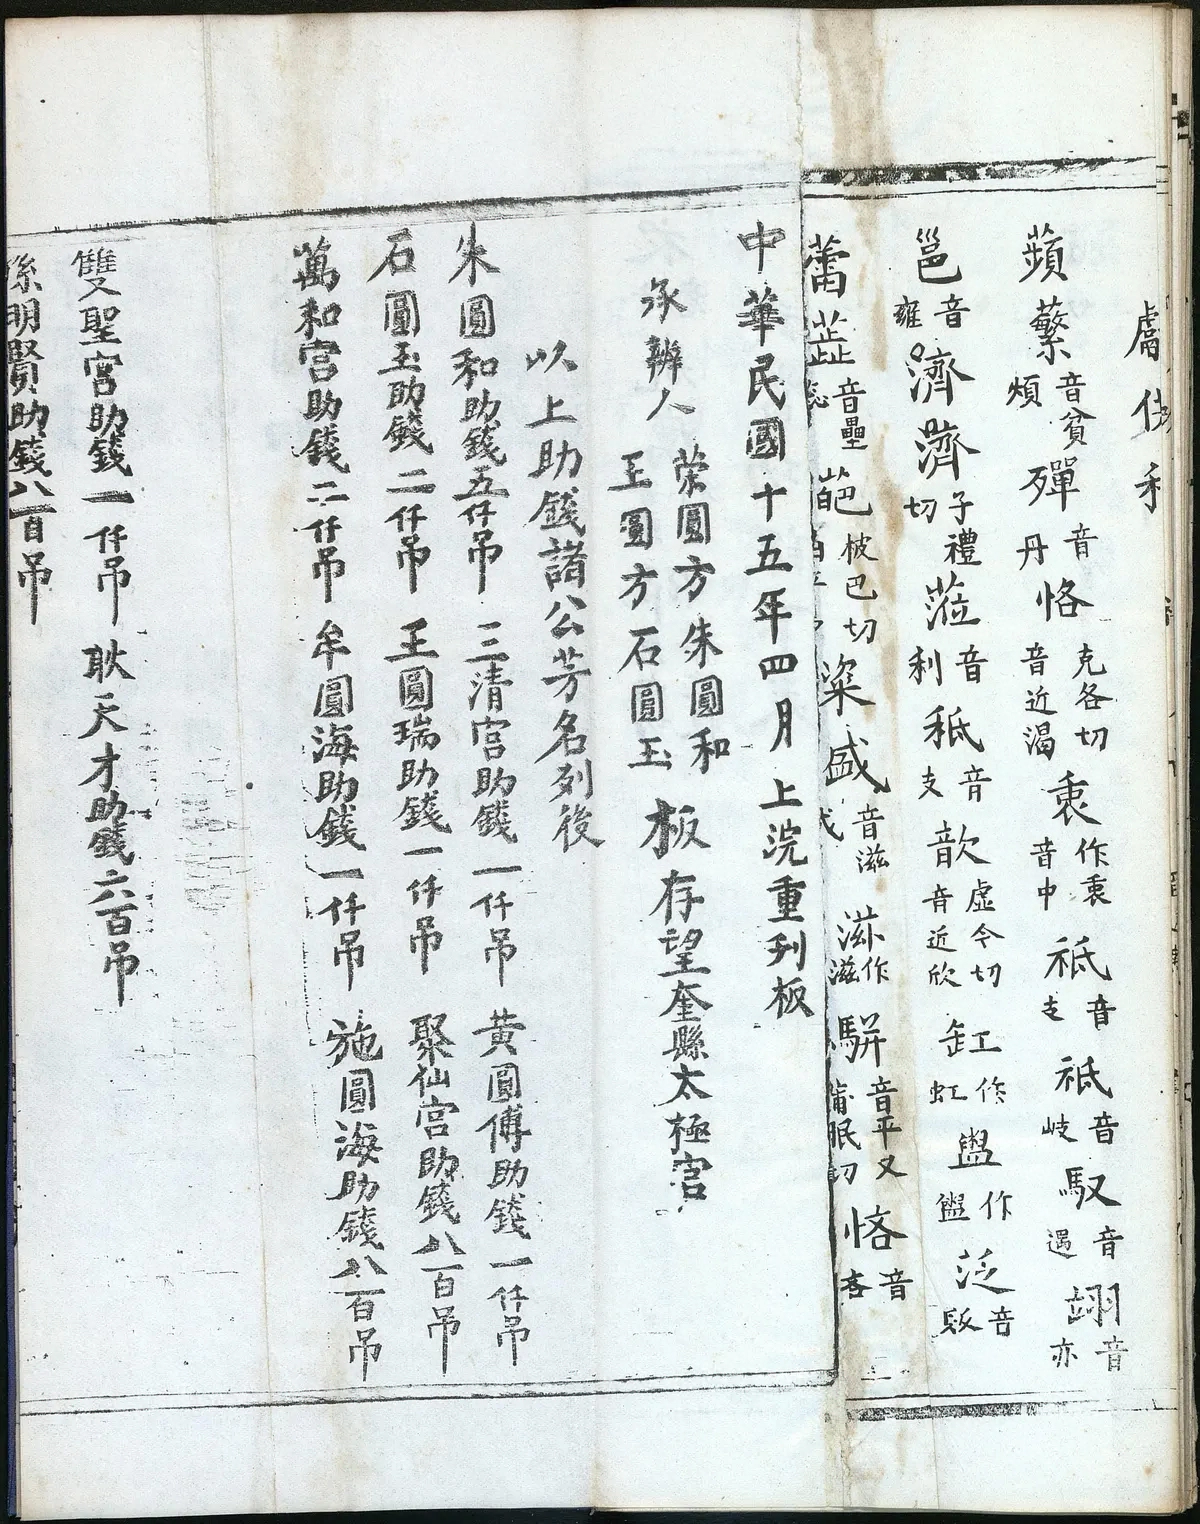 蘋蘩音貧煩殫音丹恪克各切音近渴衷作衷音中祗音支祗音岐馭音遇翊音亦
邕音雍濟濟子禮切蒞音利秪音支歆虛今切音近欣缸作缸盥作盥泛音販
蕾蕋音壘葩披巴切粢盛音滋滋作滋駢音平又蒲眠切恪音
中華民國十五年四月上浣重刋板
承辦人
荣圓方朱圓和
王圓方石圓玉
板存望奎縣太極宮
以上助錢諸公芳名列後
朱圓和助錢五仟吊 三清宮助錢一仟吊 黄圓傅助錢一仟吊
石圓玉助錢二仟吊 王圓瑞助錢一仟吊 聚仙宮助錢八百吊
萬和宮助錢二仟吊 牟圓海助錢一仟吊 施圓海助錢八百吊
雙聖宮助錢一仟吊 耿天才助錢六百吊
孫明賢助錢八百吊